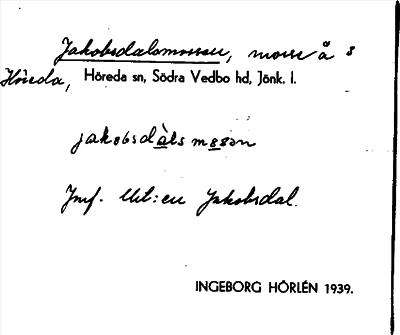 Jakobsdalsmossen, mosse å s
Höreda, Höreda sn, Södra Vedbo hd, Jönk. l.
jakobsdàls mosən
Jmf. Utt:en Jakobsdal.
INGEBORG HÖRLÉN 1939.